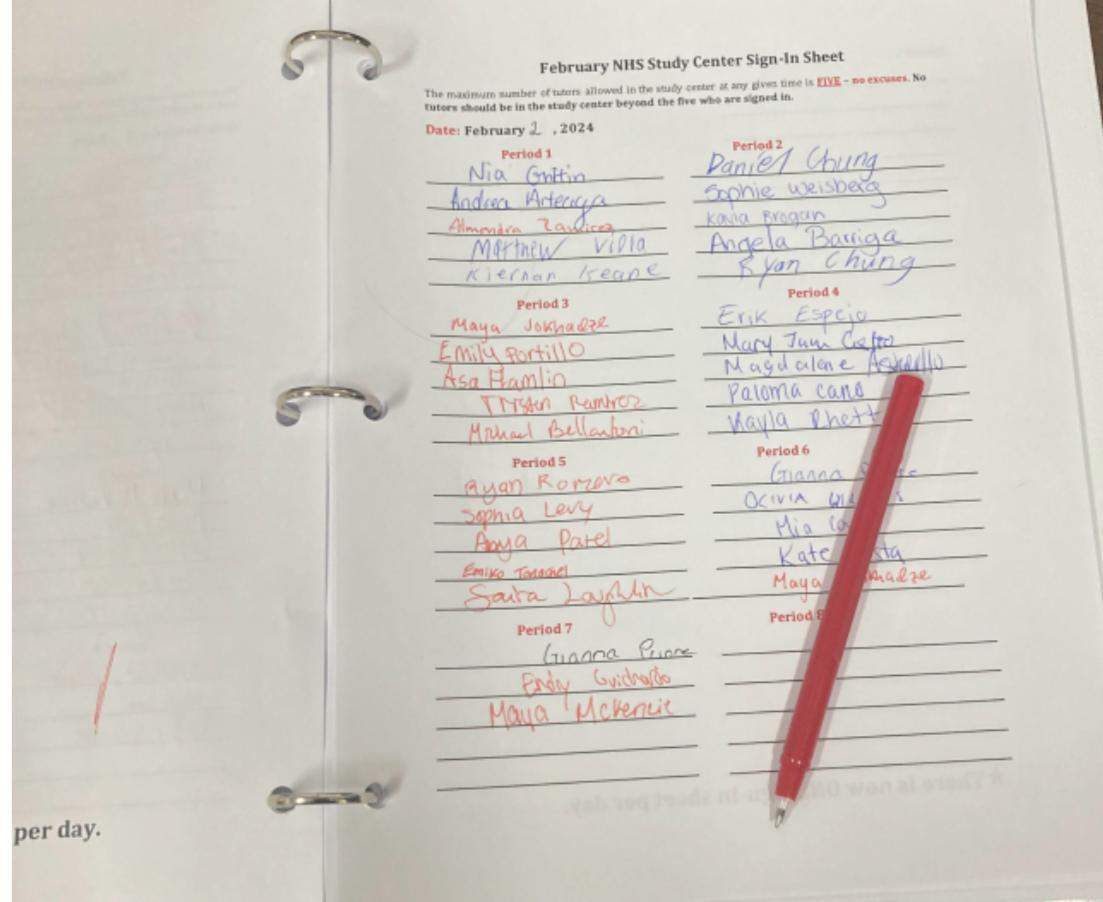 February NHS Study Center Sign-In Sheet
The maximum number of tutors allowed in the study center at any given time is FIVE – no excuses. No
tutors should be in the study center beyond the five who are signed in.
Date: February 2 , 2024
Period 1
Nia Griffin
Andrea Arteaga
Almendra
Matthew Villa
Kiernan Keane
Period 2
Daniel Chung
Sophie Weisberg
Kavia Brogan
Angela Barriga
Ryan Chung
Period 3
Maya Jokhadze
Emily Portillo
Asa Hamlin
Tristen Ramirez
Michael Bellantoni
Period 4
Erik Espejo
Mary Jum
Magdalene
Paloma Cano
Kayla Rhett
Period 5
Ryan Romero
Sophia Levy
Anya Patel
Emiko
Saira Laughlin
Period 6
Gianna
Olivia
Mia
Kate
Maya
Period 7
Gianna
Emily Guichardo
Maya McKenzie
Period 8
per day.